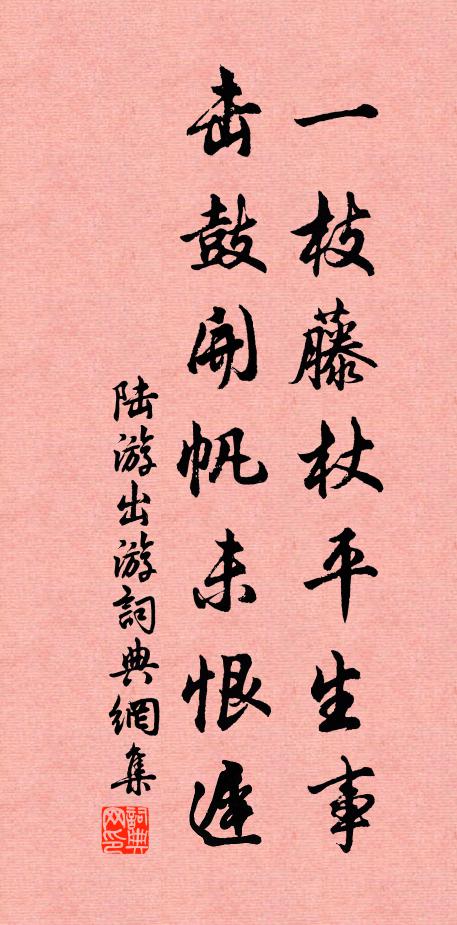 一枝藤杖平生事
击鼓开帆未恨遲
陆游出游詞典網集
詞典网印